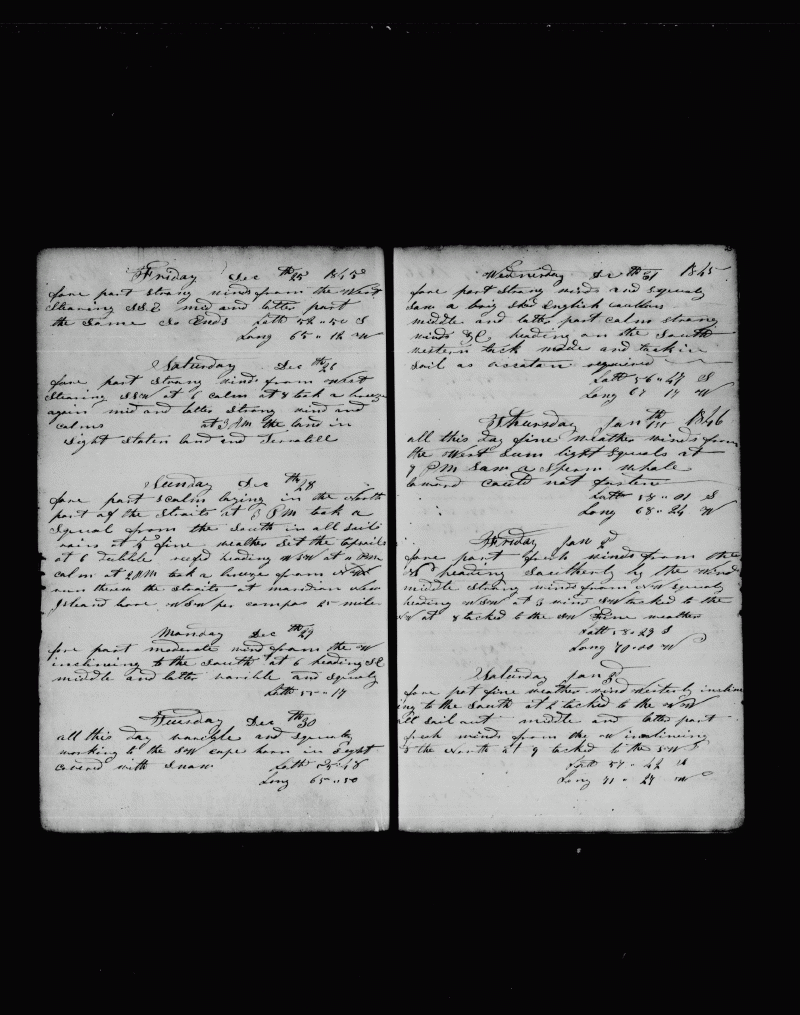 Friday Dec th 25 1845
fore part strong winds from the West
Stearing SSE mid and latter part
the same So Ends Latt 52 " 50 S
Long 65 " 12 W
Saturday Dec th
fore part Strang winds from what
Stearing SSW at 6 calm at 8 took a breeze
again mid and latter Strong wind and
calms at 3 AM the land in
Sight Staten land and
Sunday Dec th 28
fore part calm laying in the North
part of the Straits at 3 PM took a
Squal from the South in all sail
rain at 4 fine weather Set the topsails
at 6 dubble reef'd heading WSW at 11 PM
calm at 2 AM took a breeze from
run threw the straits at maridian New
Island bore WSW per compas 25 miles
Monday Dec th 29
fore part moderate wind from the W
inclineing to the South at 6 heading SE
middle and latter varible and Squaly
Latt 55 " 17
Tuesday Dec th 30
all this day varible and Squaly
working to the SW cape horn in Sight
covered with Snow Latt 55 " 48
Long 65 " 50
Wednesday Dec th 31 1845
fore part Strong winds and Squaly
Saw a brig Shod English coullers
middle and latter part calm strang
winds &C heading on the South
western tack made and tuck in
Sail as accation required
Latt 56 " 47 S
Long 67 17 W
Thursday Jan th 1st 1846
all this day fine weather winds from
the West Sum light Squals at
9 PM Saw a Sperm whale
loward could not fasten
Latt 58 " 01 S
Long 68 " 24 W
Friday Jan 2d
fore part fresh winds from the
W heading Southerly by the Wind
middle Strang winds from NW Squaly
heading WSW at 3 wind SW tacked to the
at 8 tacked to the SW fine weather
Latt 58 " 23 S
Long 70 " 00 W
Saturday Jan 3d
fore pat fine weather wind Westerly inclin
ing to the South at 2 tacked to the NW
all Sail out middle and latter part
fresh winds from the W inclineing
to the North at 9 tacked to the SW
Latt 57 " 42 S
Long 71 " 27 W